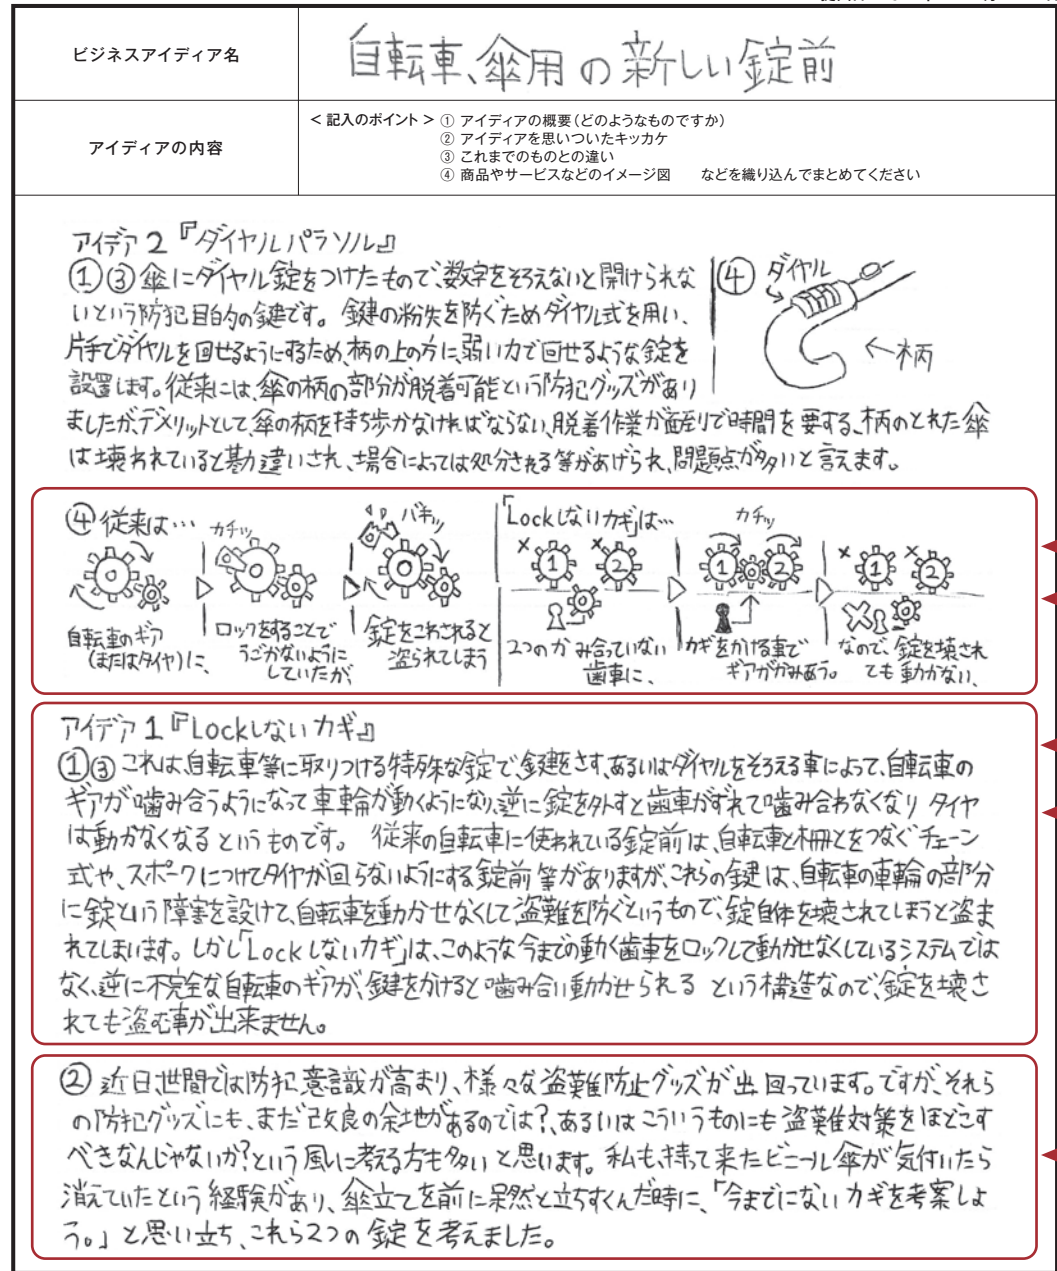 ビジネスアイディア名
自転車、傘用の新しい錠前
アイディアの内容
< 記入のポイント > ① アイディアの概要(どのようなものですか)
② アイディアを思いついたキッカケ
③ これまでのものとの違い
④ 商品やサービスなどのイメージ図 などを織り込んでまとめてください
アイデア2『ダイヤルパラソル』
①③傘にダイヤル錠をつけたもので、数字をそろえないと開けられな
いという防犯目的の鍵です。鍵の紛失を防ぐためダイヤル式を用い、
片手でダイヤルを回せるようにするため、柄の上の方に、弱い力で回せるような錠を
設置します。従来には、傘の柄の部分が脱着可能という防犯グッズがあり
ましたが、デメリットとして、傘の柄を持ち歩かなければならない、脱着作業が面倒で時間を要する、柄のとれた傘
は壊われていると勘違いされ、場合によっては処分される等があげられ、問題点が多いと言えます。
④ ダイヤル
←柄
④従来は…
カチッ
バキッ
自転車のギア
(またはタイヤ)に、
ロックをすることで
うごかないように
していたが、
錠をこわされると
盗られてしまう
「Lockしないカギ」は…
カチッ
× 1 × 2
1 2
× 1 × 2
2つのかみ合っていない
歯車に、
カギをかける事で
ギアがかみあう。
なので、錠を壊され
ても動かない、
アイデア1『Lockしないカギ』
①③これは、自転車等に取りつける特殊な錠で、鍵をさす、あるいはダイヤルをそろえる事によって、自転車の
ギアが噛み合うようになって車輪が動くようになり、逆に錠を外すと歯車がずれて噛み合わなくなり タイヤ
は動かなくなるというものです。 従来の自転車に使われている錠前は、自転車と柵とをつなぐチェーン
式や、スポークにつけてタイヤが回らないようにする錠前等がありますが、これらの鍵は、自転車の車輪の部分
に錠という障害を設けて、自転車を動かせなくして盗難を防ぐというもので、錠自体を壊されてしまうと盗ま
れてしまいます。しかし「Lockしないカギ」は、このような今までの動く歯車をロックして動かせなくしているシステムでは
なく、逆に不完全な自転車のギアが、鍵をかけると噛み合い動かせられる という構造なので、錠を壊さ
れても盗む事が出来ません。
②近日、世間では防犯意識が高まり、様々な盗難防止グッズが出回っています。ですが、それら
の防犯グッズにも、まだ改良の余地があるのでは?、あるいはこういうものにも盗難対策をほどこす
べきなんじゃないか?という風に考える方も多いと思います。私も、持って来たビニール傘が気付いたら
消えていたという経験があり、傘立てを前に呆然と立ちすくんだ時に、「今までにないカギを考案しよ
う。」と思い立ち、これら2つの錠を考えました。